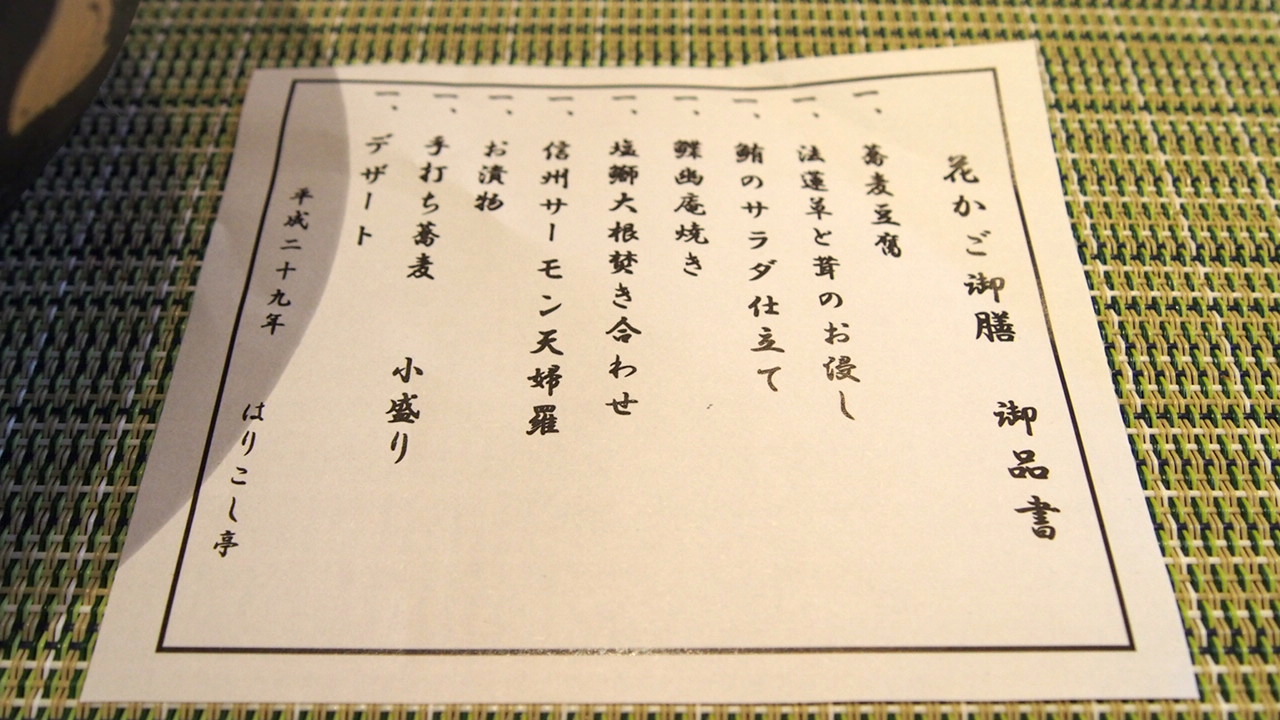 花かご御膳　御品書
一、蕎麦豆腐
一、法蓮草と茸のお浸し
一、鮪のサラダ仕立て
一、鰈幽庵焼き
一、塩鰤大根焚き合わせ
一、信州サーモン天婦羅
一、お漬物
一、手打ち蕎麦　小盛り
一、デザート
平成二十九年　はりこし亭